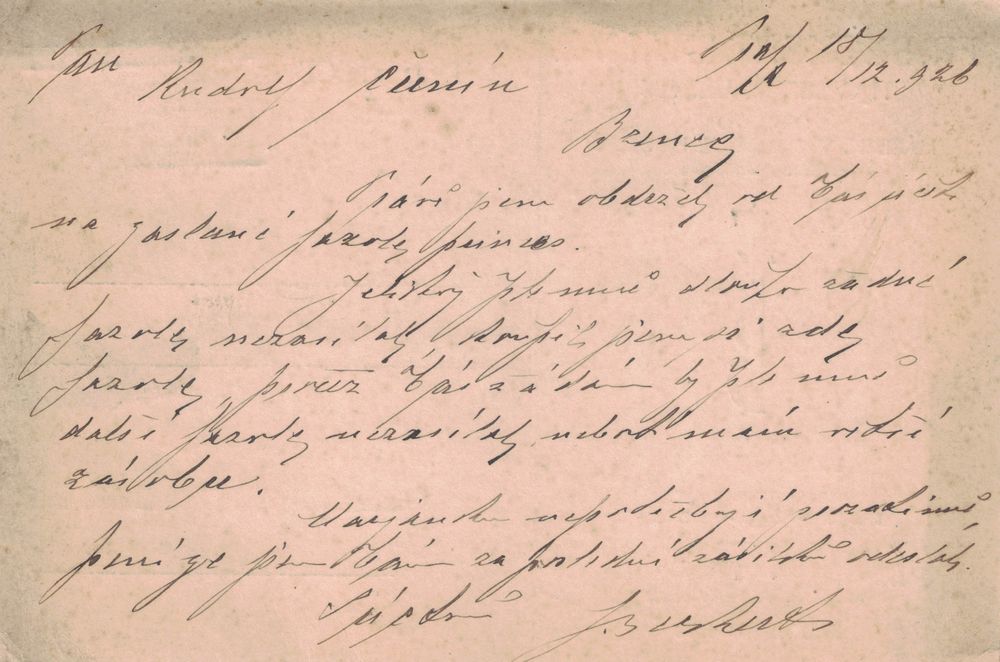 Pan
Rudolf 18/12. 926
Bzenec
Právě jsem obdržel od Vás účet
na zaslané fazole princes.
Jelikož jste mně dlouho žádné
fazole nezasílal, koupil jsem si zde
fazole, pročež Vás žádám by jste mně
další fazole nezasílal, neboť mám větší
zásobu.
Marjánku nepotřebuji
peníze jsem Vám za poslední zásilku odeslal.
S úctou